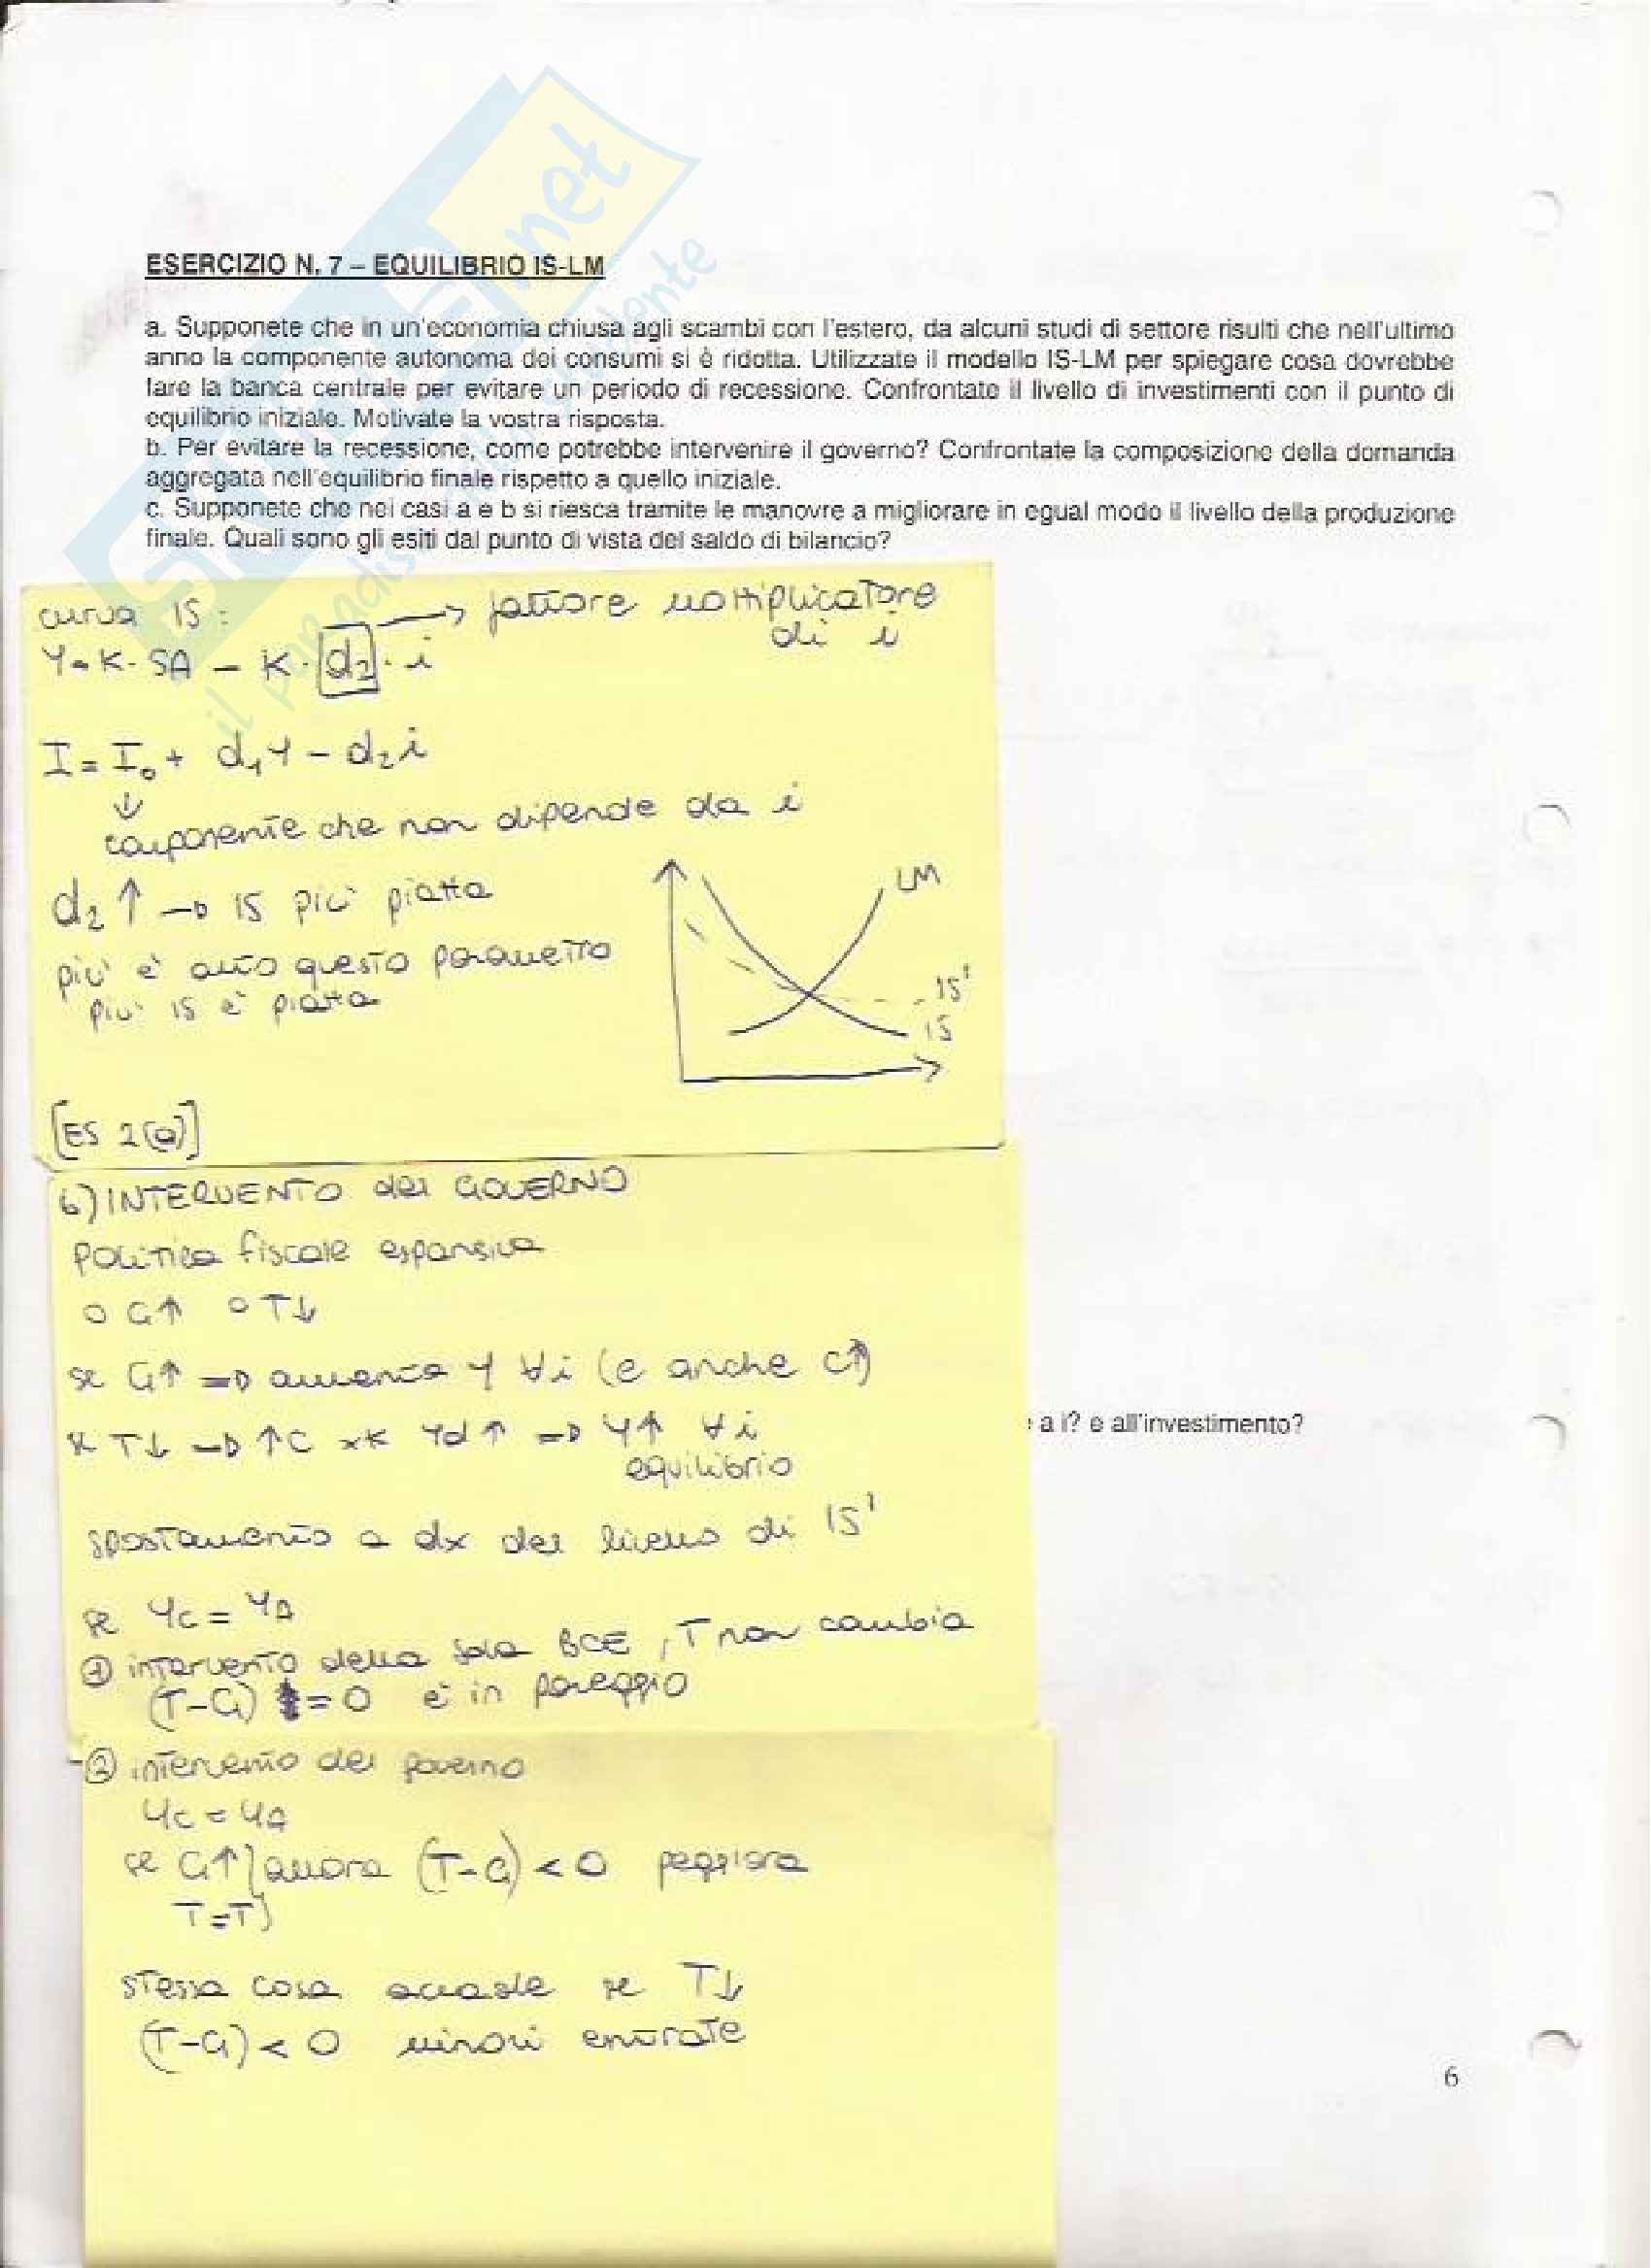 ESERCIZIO N. 7 – EQUILIBRIO IS-LM
a. Supponete che in un'economia chiusa agli scambi con l'estero, da alcuni studi di settore risulti che nell'ultimo
anno la componente autonoma dei consumi si è ridotta. Utilizzate il modello IS-LM per spiegare cosa dovrebbe
fare la banca centrale per evitare un periodo di recessione. Confrontate il livello di investimenti con il punto di
equilibrio iniziale. Motivate la vostra risposta.
b. Per evitare la recessione, come potrebbe intervenire il governo? Confrontate la composizione della domanda
aggregata nell'equilibrio finale rispetto a quello iniziale.
c. Supponete che nei casi a e b si riesca tramite le manovre a migliorare in egual modo il livello della produzione
finale. Quali sono gli esiti dal punto di vista del saldo di bilancio?
curva IS: → fattore moltiplicatore
di i
Y = K · SA – K · d₂ · i
I = I₀ + d₁Y – d₂i
↓
componente che non dipende da i
d₂ ↑ → IS più piatta
più è alto questo parametro
più IS è piatta
LM
IS'
IS
[ES 2(a)]
b) INTERVENTO del GOVERNO
politica fiscale espansiva
o G↑ o T↓
se G↑ ⇒ aumenta Y ∀i (e anche C↑)
se T↓ ⇒ ↑C xk Yd↑ ⇒ Y↑ ∀i
equilibrio
: a i? e all'investimento?
spostamento a dx del livello di IS'
se Yc = YA
① intervento della sola BCE, T non cambia
(T–G) = 0 è in pareggio
-② intervento del governo
Yc = YA
se G↑ } allora (T–G) < 0 peggiora
T=T }
stessa cosa accade se T↓
(T–G) < 0 minori entrate
6